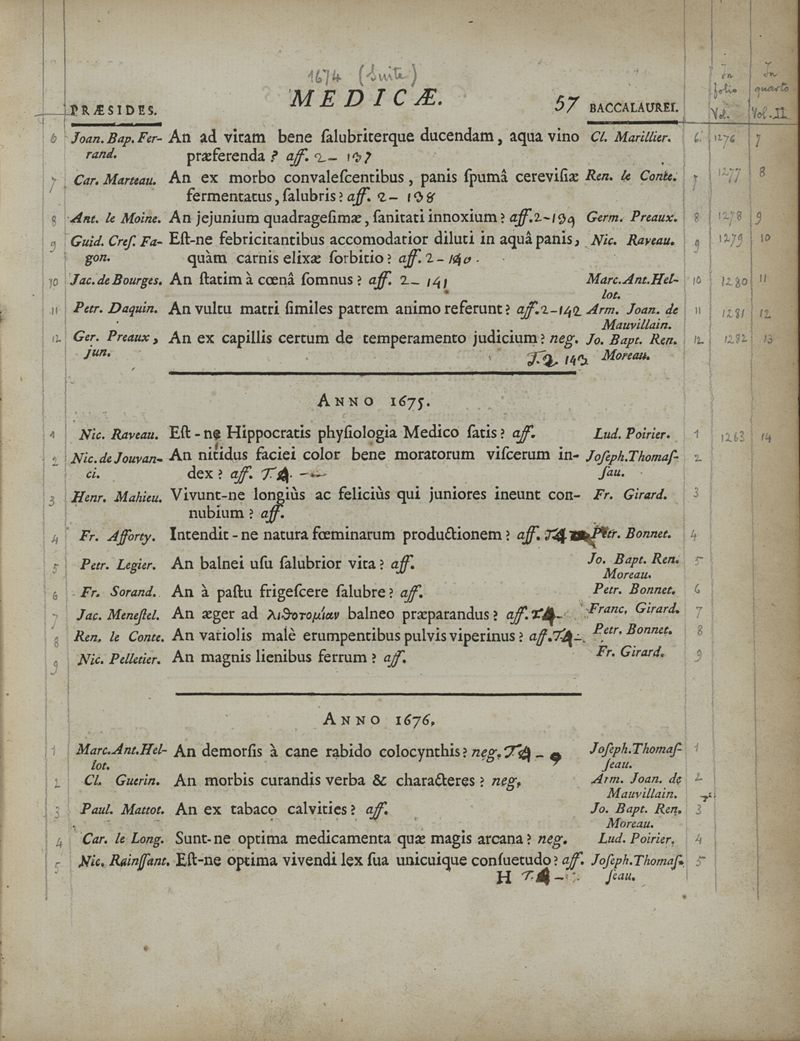 1674 (Suite)
PRÆSIDES. MEDICÆ. 57 BACCALAUREI. In folio Vol. In quarto Vol. II
6 Joan. Bap. Fer- An ad vitam bene ſalubriterque ducendam, aqua vino Cl. Marillier. 6. 1276 7
rand. præferenda ? aff. 2 - 137
7 Car. Marteau. An ex morbo convaleſcentibus, panis ſpumâ cereviſiæ Ren. le Conte. 7 1277 8
fermentatus, ſalubris ? aff. 2 - 138
8 Ant. le Moine. An jejunium quadrageſimæ, ſanitati innoxium ? aff. 2-139 Germ. Preaux. 8 1278 9
9 Guid. Creſ. Fa- Eſt-ne febricitantibus accomodatior diluti in aquâ panis, Nic. Raveau. 9 1279 10
gon. quàm carnis elixæ ſorbitio ? aff. 2 - 140.
10 Jac. de Bourges. An ſtatim à cœnâ ſomnus ? aff. 2 - 141 Marc. Ant. Hel- 10 1280 11
lot.
11 Petr. Daquin. An vultu matri ſimiles patrem animo referunt ? aff. 2-142 Arm. Joan. de 11 1281 12
Mauvillain.
12 Ger. Preaux, An ex capillis certum de temperamento judicium ? neg. Jo. Bapt. Ren. 12. 1282 13
jun. T. 2. 143 Moreau.
ANNO 1675.
1 Nic. Raveau. Eſt-ne Hippocratis phyſiologia Medico ſatis ? aff. Lud. Poirier. 1 1263 14
2 Nic. de Jouvan- An nitidus faciei color bene moratorum viſcerum in- Joſeph. Thomaſ- 2
ci. dex ? aff. T. 4. - ſau.
3 Henr. Mahieu. Vivunt-ne longiùs ac feliciùs qui juniores ineunt con- Fr. Girard. 3
nubium ? aff.
4 Fr. Afforty. Intendit-ne natura fœminarum productionem ? aff. T 4 Petr. Bonnet. 4
5 Petr. Legier. An balnei uſu ſalubrior vita ? aff. Jo. Bapt. Ren. 5
Moreau.
6 Fr. Sorand. An à paſtu frigeſcere ſalubre ? aff. Petr. Bonnet. 6
7 Jac. Meneſtel. An æger ad λιθοτομίαν balneo præparandus ? aff. T. 4 - Franc. Girard. 7
8 Ren. le Conte. An variolis malè erumpentibus pulvis viperinus ? aff. T. 4 - Petr. Bonnet. 8
9 Nic. Pelletier. An magnis lienibus ferrum ? aff. Fr. Girard. 9
ANNO 1676.
1 Marc. Ant. Hel- An demorſis à cane rabido colocynthis ? neg. T. 4 - Joſeph. Thomaſ- 1
lot. ſeau.
2 Cl. Guerin. An morbis curandis verba & characteres ? neg. Arm. Joan. de 2
Mauvillain.
3 Paul. Mattot. An ex tabaco calvities ? aff. Jo. Bapt. Ren. 3
Moreau.
4 Car. le Long. Sunt-ne optima medicamenta quæ magis arcana ? neg. Lud. Poirier. 4
5 Nic. Rainſſant. Eſt-ne optima vivendi lex ſua unicuique conſuetudo ? aff. Joſeph. Thomaſ- 5
H T. 4 - ſeau.